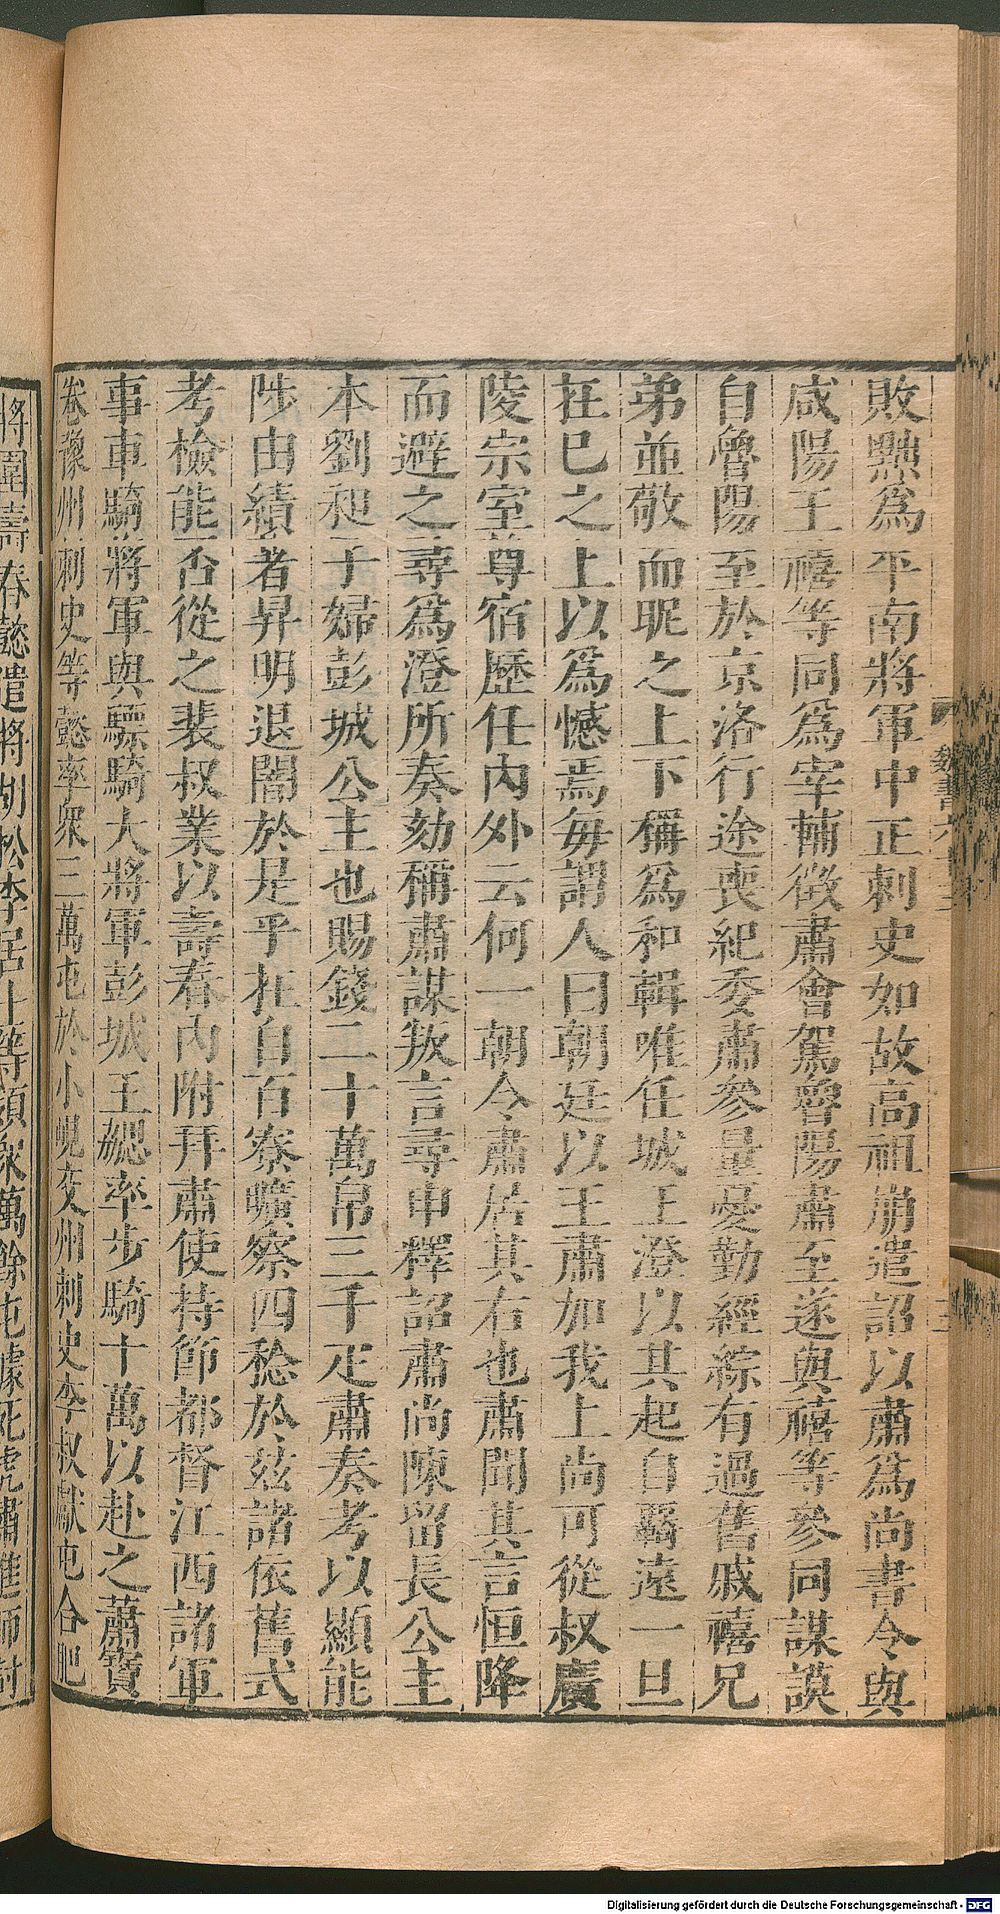 敗黜爲平南將軍中正刺史如故高祖崩遣詔以肅爲尚書令與
咸陽王禧等同爲宰輔徵肅會駕魯陽肅至遂與禧等參同謀謨
自魯陽至於京洛行途喪紀委肅參量憂勤經綜有過舊戚禧兄
弟並敬而昵之上下稱爲和輯唯任城王澄以其起自羇遠一旦
在巳之上以爲憾焉每謂人曰朝廷以王肅加我上尚可從叔廣
陵宗室尊宿歷任內外云何一朝令肅居其右也肅聞其言恒降
而避之尋爲澄所奏劾稱肅謀叛言尋申釋詔肅尚陳留長公主
本劉昶子婦彭城公主也賜錢二十萬帛三千疋肅奏考以顯能
陟由績著昇明退闇於是乎在自百寮曠察四稔於茲諸依舊式
考檢能否從之裴叔業以壽春內附拜肅使持節都督江西諸軍
事車騎將軍與驃騎大將軍彭城王勰率步騎十萬以赴之蕭寶
卷豫州刺史等懿率眾三萬屯於小峴交州刺史李叔獻屯合肥
將圍壽春懿遣將胡松李居士等領眾萬餘屯據死虎肅進師討
魏書
Digitalisierung gefördert durch die Deutsche Forschungsgemeinschaft - DFG